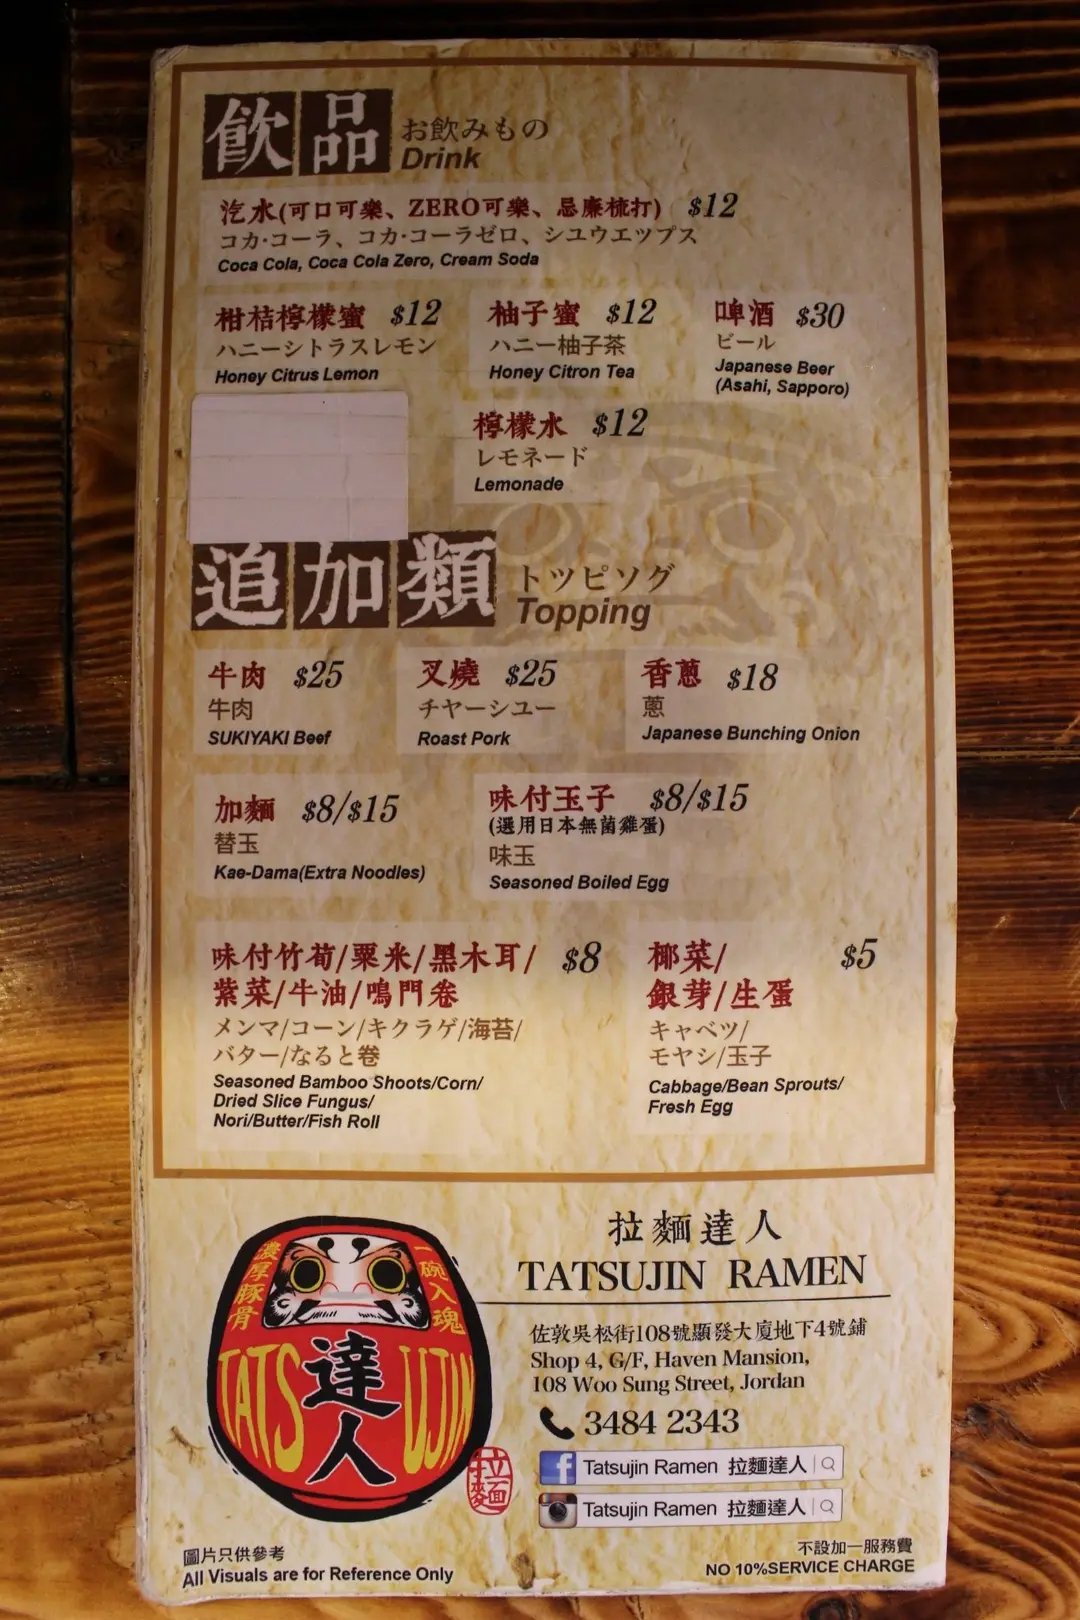 飲品
お飲みもの
Drink
汔水(可口可樂、ZERO可樂、忌廉梳打) $12
コカ·コーラ、コカ·コーラゼロ、シユウエツプス
Coca Cola, Coca Cola Zero, Cream Soda
柑桔檸檬蜜 $12
ハニーシトラスレモン
Honey Citrus Lemon
柚子蜜 $12
ハニー柚子茶
Honey Citron Tea
啤酒 $30
ビール
Japanese Beer
(Asahi, Sapporo)
檸檬水 $12
レモネード
Lemonade
追加類
トツピソグ
Topping
牛肉 $25
牛肉
SUKIYAKI Beef
叉燒 $25
チヤーシユー
Roast Pork
香蔥 $18
蔥
Japanese Bunching Onion
加麵 $8/$15
替玉
Kae-Dama(Extra Noodles)
味付玉子 $8/$15
(選用日本無菌雞蛋)
味玉
Seasoned Boiled Egg
味付竹荀/粟米/黑木耳/ $8
紫菜/牛油/鳴門卷
メンマ/コーン/キクラゲ/海苔/
バター/なると卷
Seasoned Bamboo Shoots/Corn/
Dried Slice Fungus/
Nori/Butter/Fish Roll
椰菜/ $5
銀芽/生蛋
キャベツ/
モヤシ/玉子
Cabbage/Bean Sprouts/
Fresh Egg
濃厚豚骨
一碗入魂
TATSUJIN
達人
拉麵
拉麵達人
TATSUJIN RAMEN
佐敦吳松街108號顯發大廈地下4號鋪
Shop 4, G/F, Haven Mansion,
108 Woo Sung Street, Jordan
3484 2343
f Tatsujin Ramen 拉麵達人
Tatsujin Ramen 拉麵達人
圖片只供參考
All Visuals are for Reference Only
不設加一服務費
NO 10%SERVICE CHARGE